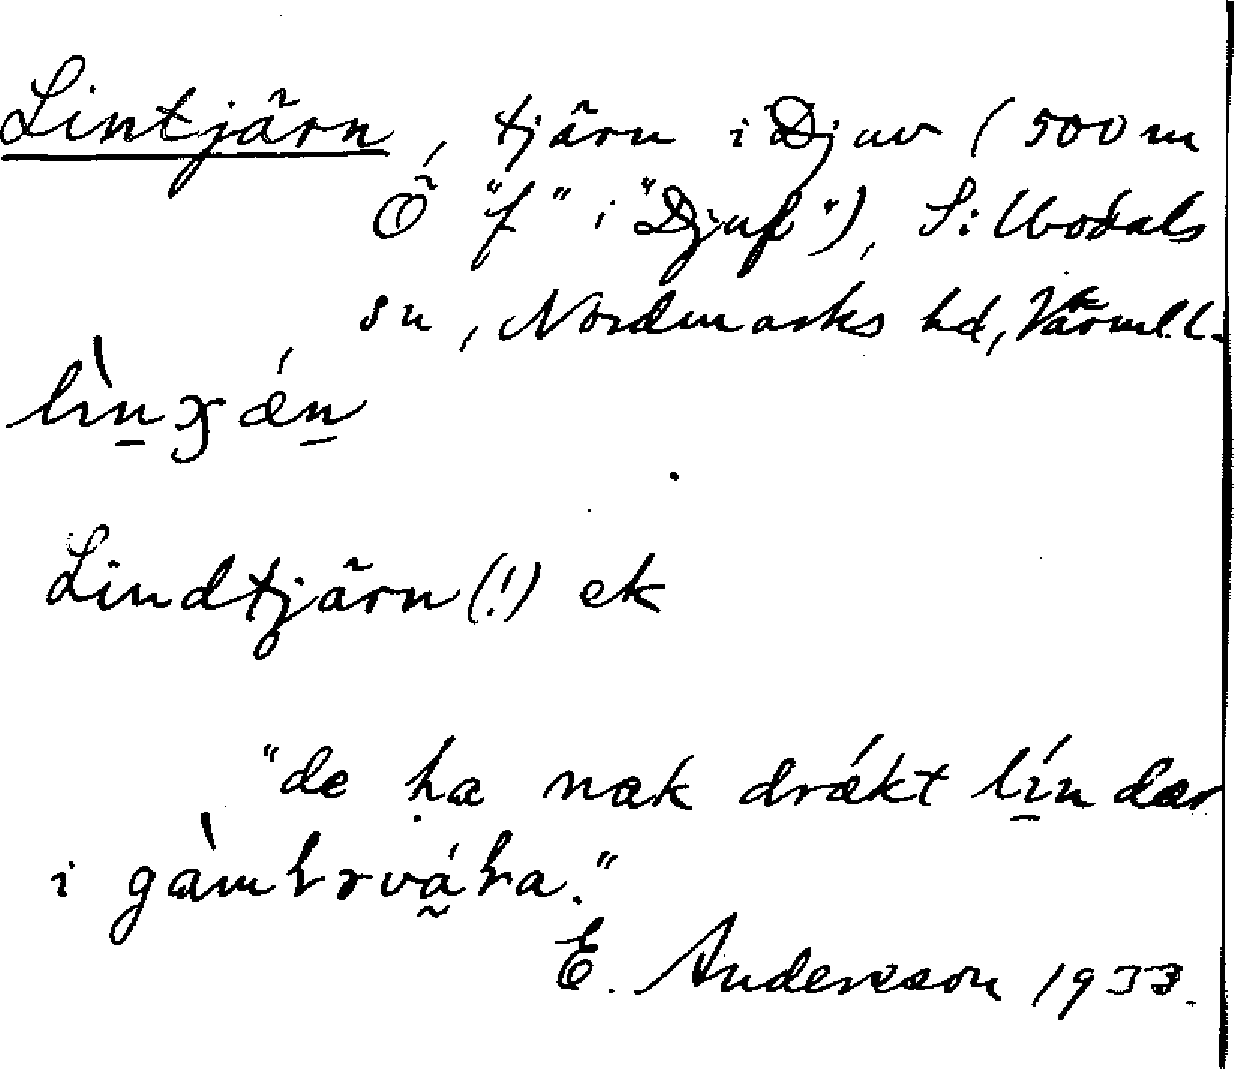 Lintjärn, tjärn i Djuv (500 m
Ö "f" i "Djuf"), Sillbodals
sn, Nordmarks hd, Värml.l.
Lindtjärn (!) ek
"de ha næk drǽkt lín dær
i
E. Andersson 1933.